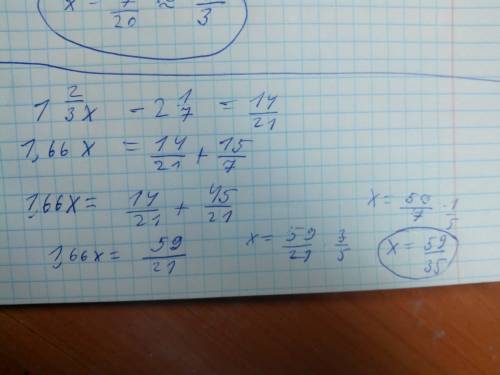 x = 7/20 ≈ /3
1 2/3 x - 2 1/7 = 14/21
1,66 x = 14/21 + 15/7
1,66x = 14/21 + 45/21
1,66x = 59/21
x = 59/21 3/5
x = 59/7 · 1/5
x = 59/35